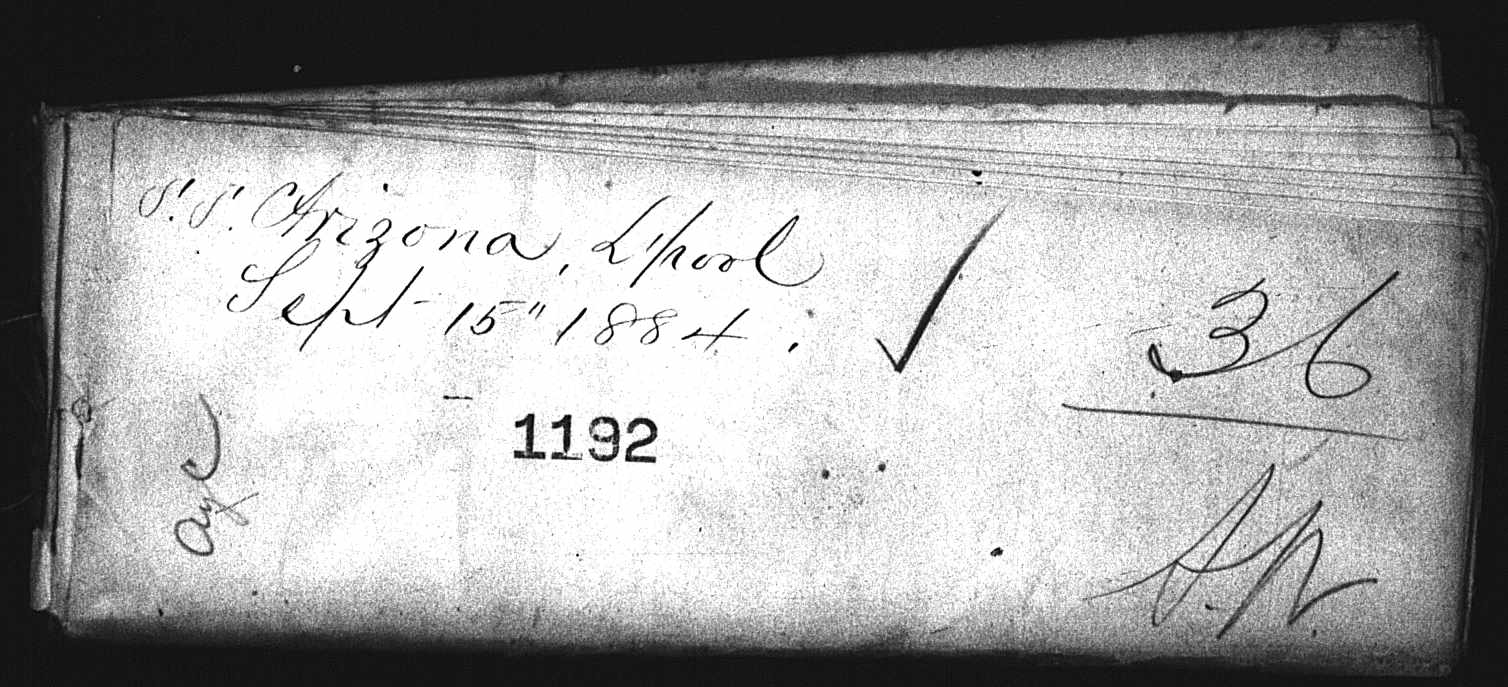 S.S. Arizona, L'pool
Sept 15" 1884.
1192
36